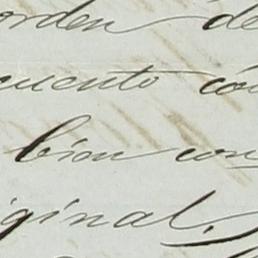 orden de
cuento con
bion con
iginal.